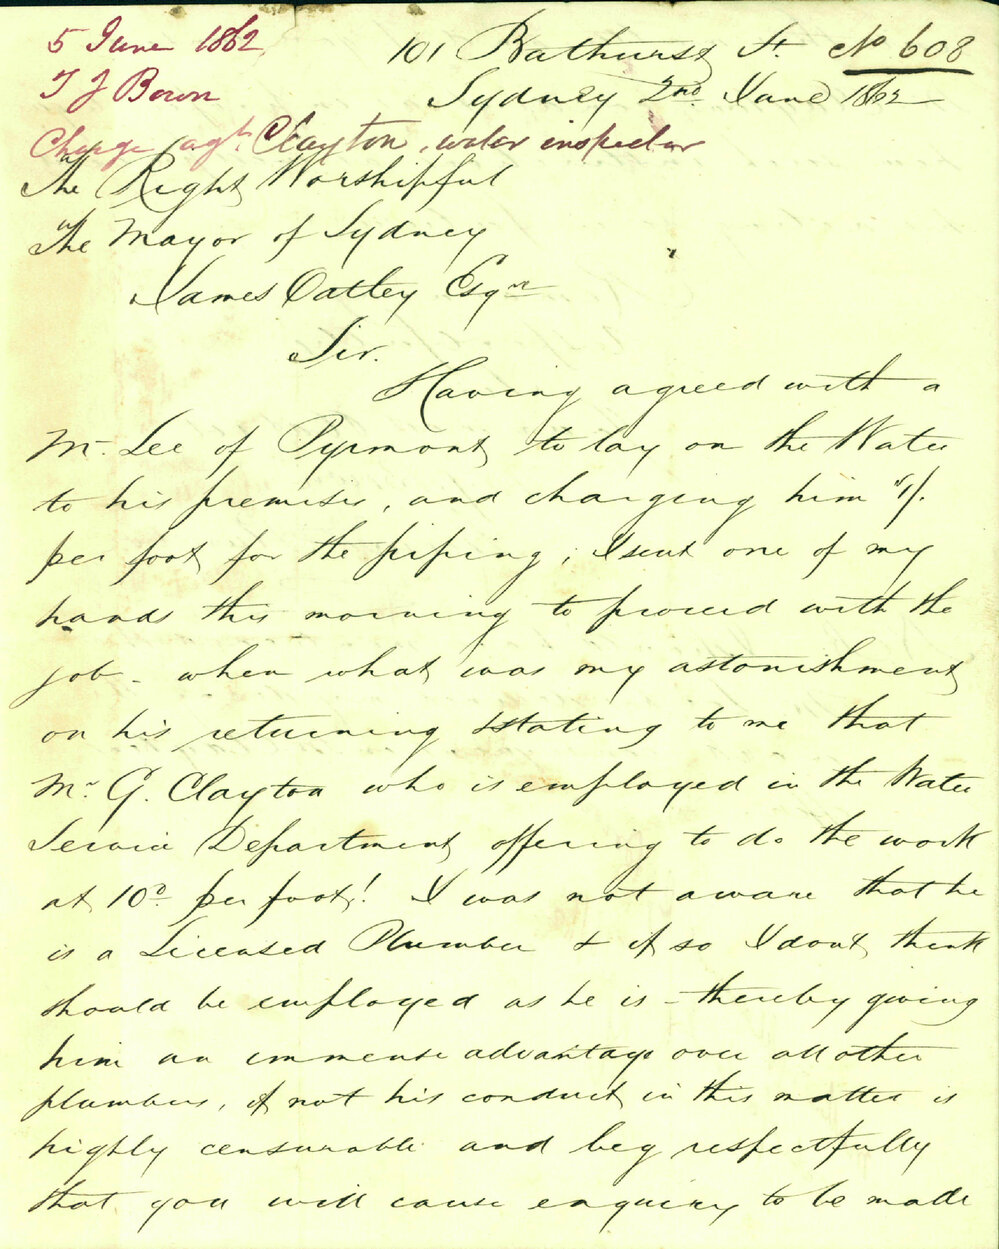 5 June 1862
T J Bown
Charge agst Clayton, water inspector
101 Bathurst St. No 608
Sydney 2nd June 1862
The Right Worshipful
The Mayor of Sydney
James Oatley Esqre
Sir.
Having agreed with a
Mr. Lee of Pyrmont to lay on the Water
to his premises, and charging him "1/.
per foot for the piping; I sent one of my
hands this morning to proceed with the
job - when what was my astonishment
on his returning & stating to me that
Mr. G. Clayton who is employed in the Water
Service Department offering to do the work
at 10d per foot! I was not aware that he
is a Licensed Plumber & if so I dont think
should be employed as he is - thereby giving
him an immense advantage over all other
plumbers, if not his conduct in this matter is
highly censurable and beg respectfully
that you will cause enquiry to be made